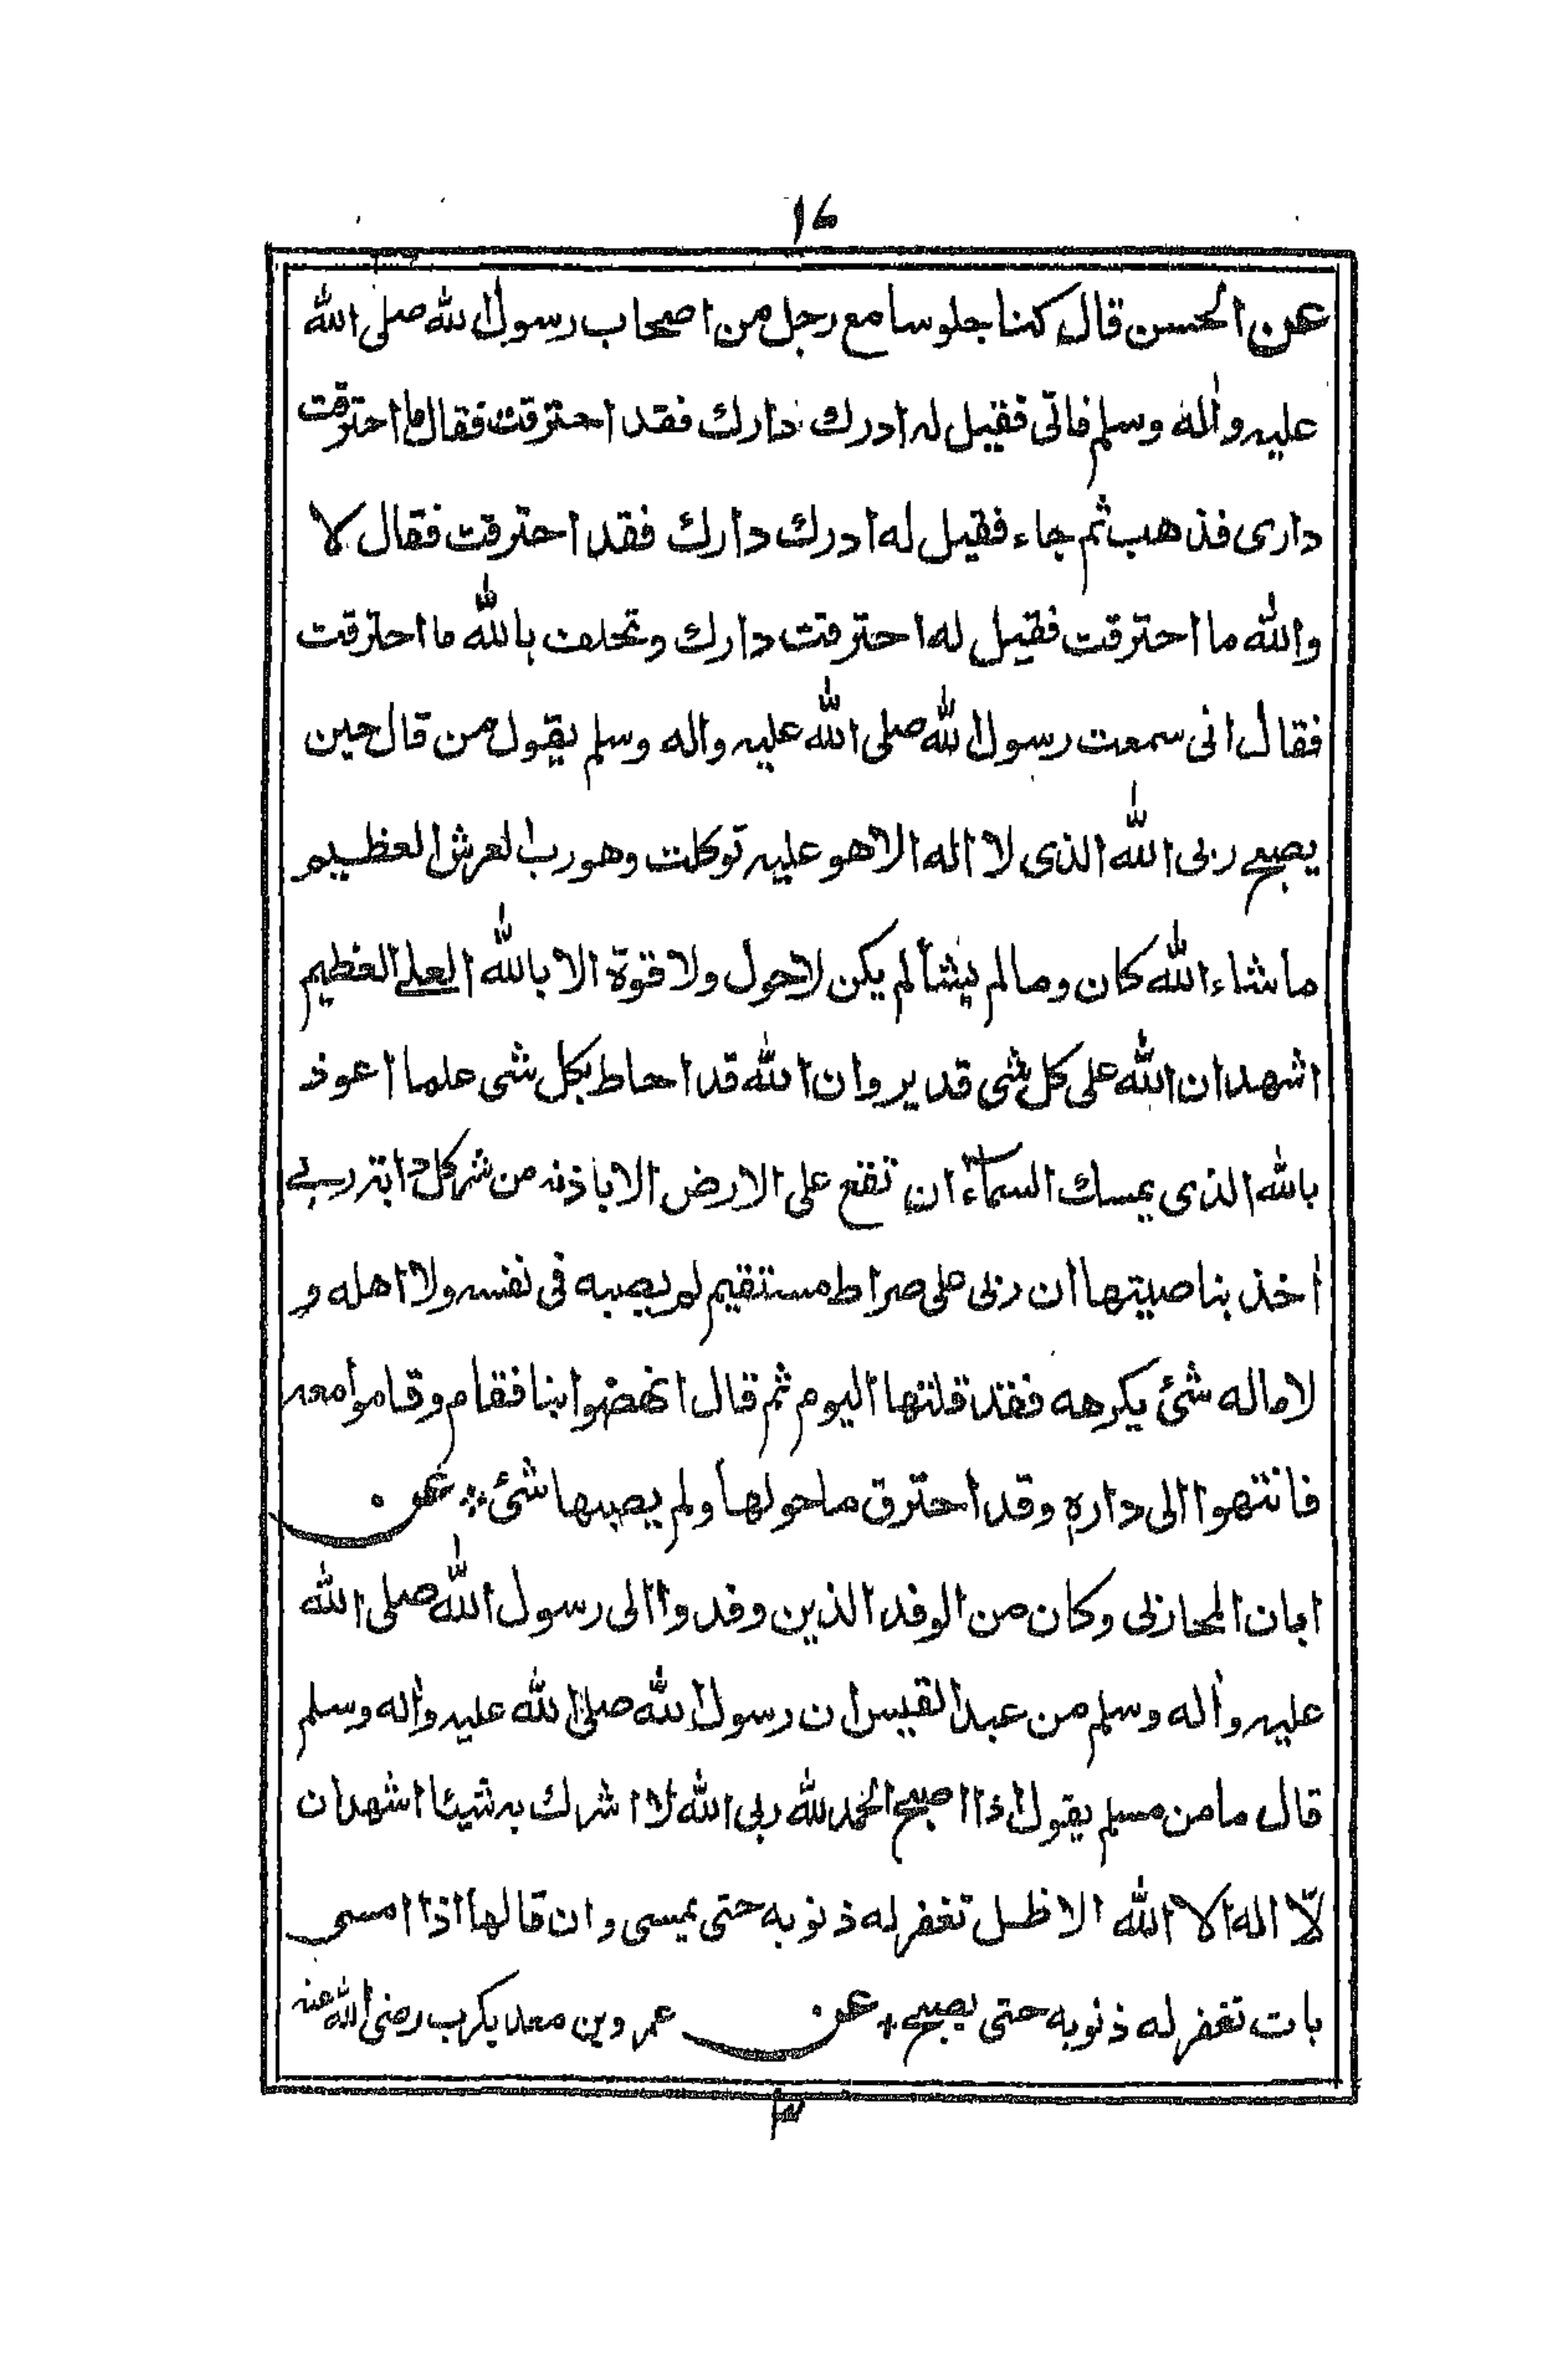 ١٤
عن الحسن قال كنا جلوسا مع رجل من اصحاب رسول الله صلى الله
عليه واٰله وسلم فاتى فقيل له ادرك دارك فقد احترقت فقال ما احترقت
دارى فذهب ثم جاء فقيل له ادرك دارك فقد احترقت فقال لا
والله ما احترقت فقيل له احترقت دارك وتحلف بالله ما احترقت
فقال انى سمعت رسول الله صلى الله عليه واله وسلم يقول من قال حين
يصبح ربى الله الذى لا اله الا هو عليه توكلت وهو رب العرش العظيم
ما شاء الله كان وما لم يشأ لم يكن لا حول ولا قوة الا بالله العلى العظيم
اشهد ان الله على كل شى قدير وان الله قد احاط بكل شى علما اعوذ
بالله الذى يمسك السماء ان تقع على الارض الا باذنه من شر كل دابة ربى
اٰخذ بناصيتها ان ربى على صراط مستقيم لم يصبه فى نفسه ولا اهله و
لا ماله شئ يكرهه فقد قلتها اليوم ثم قال انهضوا بنا فقام وقاموا معه
فانتهوا الى داره وقد احترق ما حولها ولم يصبها شئ ؞ عن
ابان المحاربى وكان من الوفد الذين وفدوا الى رسول الله صلى الله
عليه واٰله وسلم من عبد القيس ان رسول الله صلى الله عليه واٰله وسلم
قال ما من مسلم يقول اذا اصبح الحمد لله ربى الله لا اشرك به شيئا اشهد ان
لّا اله الا الله الا ظل تغفر له ذنوبه حتى يمسى وان قالها اذا امسى
بات تغفر له ذنوبه حتى يصبح * عن عمرو بن معد يكرب رضى الله عنه